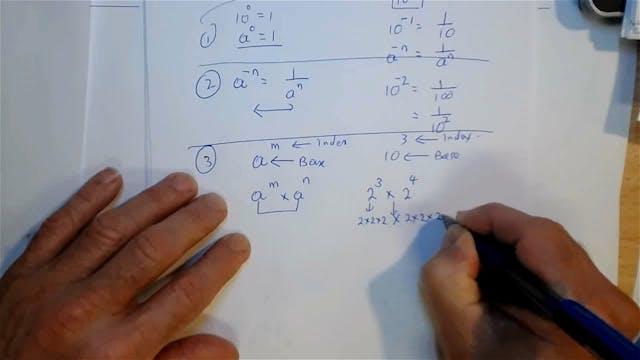 10⁰ = 1
① a⁰ = 1
10⁻¹ = 1/10
a⁻ⁿ = 1/aⁿ
② a⁻ⁿ = 1/aⁿ
↔
10⁻² = 1/100
= 1/10²
③ m ← Index
a ← Base
3 ← Index
10 ← Base
aᵐ × aⁿ
2³ × 2⁴
↓ ↓
2×2×2 × 2×2×2